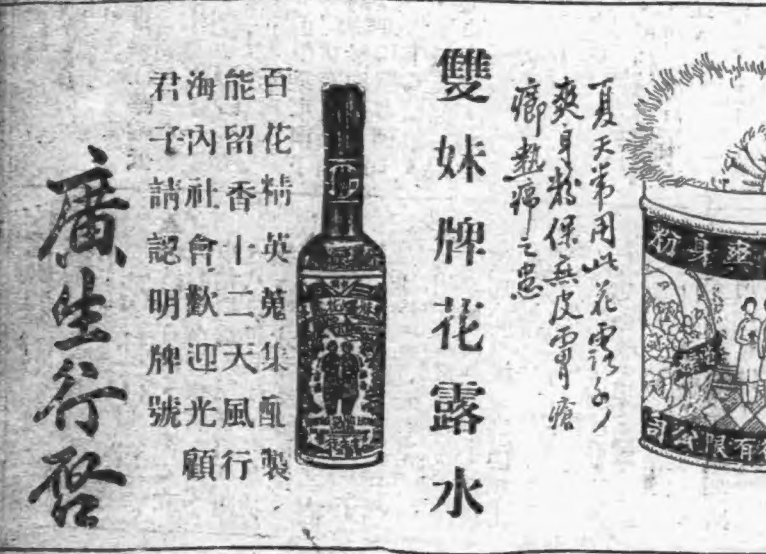 爽身粉
有限公司
夏天常用此花露水
爽身粉保無皮膚瘡
癤熱痱之患
雙妹牌花露水
百花精英蒐集配製
能留香十二天風行
海內社會歡迎光顧
君子請認明牌號
廣生行啓